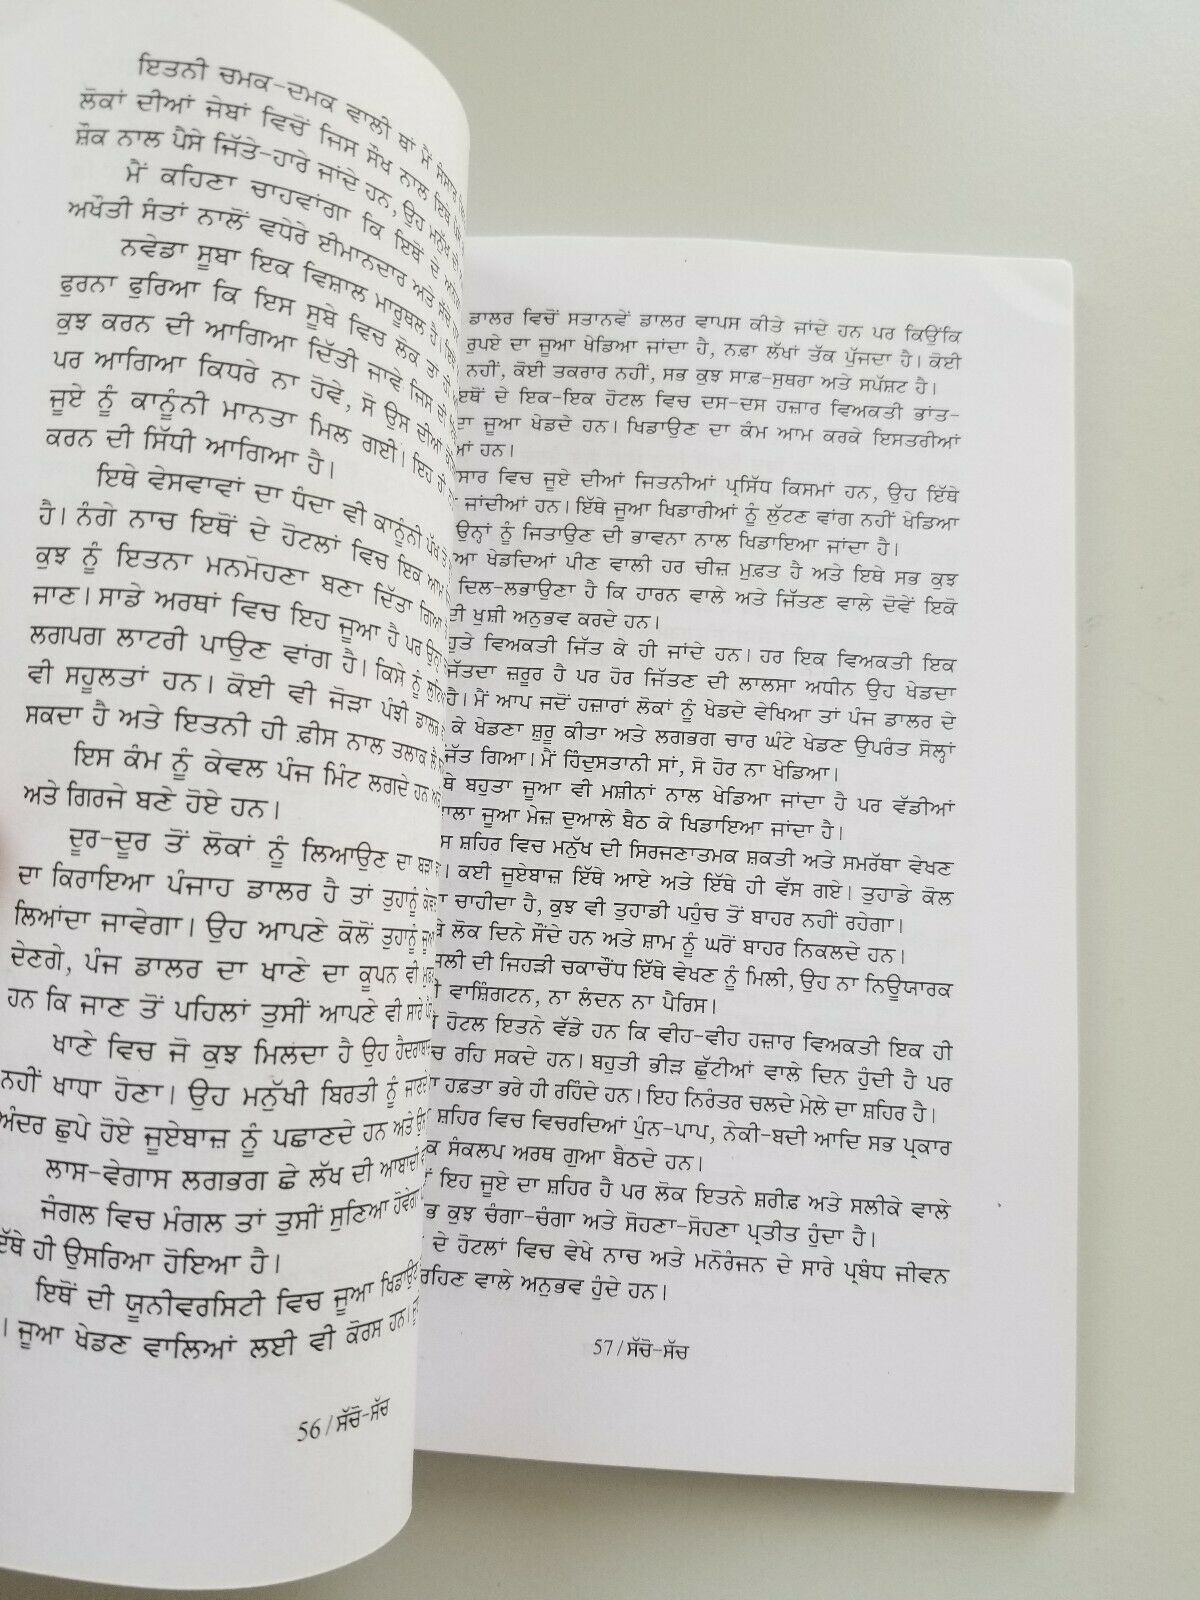 ਇਤਨੀ ਚਮਕ-ਦਮਕ ਵਾਲੀ ਥਾਂ ਮੈਂ ਸੰਸਾਰ
ਲੋਕਾਂ ਦੀਆਂ ਜੇਬਾਂ ਵਿਚੋਂ ਜਿਸ ਸੌਖ ਨਾਲ ਇਥੇ
ਸ਼ੌਕ ਨਾਲ ਪੈਸੇ ਜਿੱਤੇ-ਹਾਰੇ ਜਾਂਦੇ ਹਨ, ਉਹ ਮਨੁੱਖ ਦੀ
ਮੈਂ ਕਹਿਣਾ ਚਾਹਵਾਂਗਾ ਕਿ ਇਥੋਂ ਦੇ
ਅਖੌਤੀ ਸੰਤਾਂ ਨਾਲੋਂ ਵਧੇਰੇ ਈਮਾਨਦਾਰ ਅਤੇ ਸੱਚੇ
ਨਵੇਡਾ ਸੂਬਾ ਇਕ ਵਿਸ਼ਾਲ ਮਾਰੂਥਲ ਹੈ।
ਫੁਰਨਾ ਫੁਰਿਆ ਕਿ ਇਸ ਸੂਬੇ ਵਿਚ ਲੋਕ ਤਾਂ
ਕੁਝ ਕਰਨ ਦੀ ਆਗਿਆ ਦਿੱਤੀ ਜਾਵੇ ਜਿਸ ਦੀ
ਪਰ ਆਗਿਆ ਕਿਧਰੇ ਨਾ ਹੋਵੇ, ਸੋ ਉਸ ਦੀਆਂ
ਜੂਏ ਨੂੰ ਕਾਨੂੰਨੀ ਮਾਨਤਾ ਮਿਲ ਗਈ। ਇਹ ਹੀ
ਕਰਨ ਦੀ ਸਿੱਧੀ ਆਗਿਆ ਹੈ।
ਇਥੇ ਵੇਸਵਾਵਾਂ ਦਾ ਧੰਦਾ ਵੀ ਕਾਨੂੰਨੀ ਪੱਖ ਤੋਂ
ਹੈ। ਨੰਗੇ ਨਾਚ ਇਥੋਂ ਦੇ ਹੋਟਲਾਂ ਵਿਚ ਇਕ ਆਮ
ਕੁਝ ਨੂੰ ਇਤਨਾ ਮਨਮੋਹਣਾ ਬਣਾ ਦਿੱਤਾ ਗਿਆ
ਜਾਣ। ਸਾਡੇ ਅਰਥਾਂ ਵਿਚ ਇਹ ਜੂਆ ਹੈ ਪਰ ਉਨ੍ਹਾਂ
ਲਗਪਗ ਲਾਟਰੀ ਪਾਉਣ ਵਾਂਗ ਹੈ। ਕਿਸੇ ਨੂੰ
ਵੀ ਸਹੂਲਤਾਂ ਹਨ। ਕੋਈ ਵੀ ਜੋੜਾ ਪੰਝੀ ਡਾਲਰ
ਸਕਦਾ ਹੈ ਅਤੇ ਇਤਨੀ ਹੀ ਫ਼ੀਸ ਨਾਲ ਤਲਾਕ ਲੈ
ਇਸ ਕੰਮ ਨੂੰ ਕੇਵਲ ਪੰਜ ਮਿੰਟ ਲਗਦੇ ਹਨ
ਅਤੇ ਗਿਰਜੇ ਬਣੇ ਹੋਏ ਹਨ।
ਦੂਰ-ਦੂਰ ਤੋਂ ਲੋਕਾਂ ਨੂੰ ਲਿਆਉਣ ਦਾ ਬੜਾ
ਦਾ ਕਿਰਾਇਆ ਪੰਜਾਹ ਡਾਲਰ ਹੈ ਤਾਂ ਤੁਹਾਨੂੰ
ਲਿਆਂਦਾ ਜਾਵੇਗਾ। ਉਹ ਆਪਣੇ ਕੋਲੋਂ ਤੁਹਾਨੂੰ
ਦੇਣਗੇ, ਪੰਜ ਡਾਲਰ ਦਾ ਖਾਣੇ ਦਾ ਕੂਪਨ ਵੀ
ਹਨ ਕਿ ਜਾਣ ਤੋਂ ਪਹਿਲਾਂ ਤੁਸੀਂ ਆਪਣੇ ਵੀ ਸਾਰੇ
ਖਾਣੇ ਵਿਚ ਜੋ ਕੁਝ ਮਿਲਦਾ ਹੈ ਉਹ
ਨਹੀਂ ਖਾਧਾ ਹੋਣਾ। ਉਹ ਮਨੁੱਖੀ ਬਿਰਤੀ ਨੂੰ ਜਾਣਦੇ
ਅੰਦਰ ਛੁਪੇ ਹੋਏ ਜੂਏਬਾਜ਼ ਨੂੰ ਪਛਾਣਦੇ ਹਨ ਅਤੇ
ਲਾਸ-ਵੇਗਾਸ ਲਗਭਗ ਛੇ ਲੱਖ ਦੀ ਆਬਾਦੀ
ਜੰਗਲ ਵਿਚ ਮੰਗਲ ਤਾਂ ਤੁਸੀਂ ਸੁਣਿਆ ਹੋਵੇਗਾ
ਇੱਥੇ ਹੀ ਉਸਰਿਆ ਹੋਇਆ ਹੈ।
ਇਥੋਂ ਦੀ ਯੂਨੀਵਰਸਿਟੀ ਵਿਚ ਜੂਆ ਖਿਡਾਉਣ
। ਜੂਆ ਖੇਡਣ ਵਾਲਿਆਂ ਲਈ ਵੀ ਕੋਰਸ ਹਨ।
56/ਸੱਚੋ-ਸੱਚ
ਡਾਲਰ ਵਿਚੋਂ ਸਤਾਨਵੇਂ ਡਾਲਰ ਵਾਪਸ ਕੀਤੇ ਜਾਂਦੇ ਹਨ ਪਰ ਕਿਉਂਕਿ
ਰੁਪਏ ਦਾ ਜੂਆ ਖੇਡਿਆ ਜਾਂਦਾ ਹੈ, ਨਫ਼ਾ ਲੱਖਾਂ ਤੱਕ ਪੁੱਜਦਾ ਹੈ। ਕੋਈ
ਨਹੀਂ, ਕੋਈ ਤਕਰਾਰ ਨਹੀਂ, ਸਭ ਕੁਝ ਸਾਫ਼-ਸੁਥਰਾ ਅਤੇ ਸਪੱਸ਼ਟ ਹੈ।
ਇਥੋਂ ਦੇ ਇਕ-ਇਕ ਹੋਟਲ ਵਿਚ ਦਸ-ਦਸ ਹਜ਼ਾਰ ਵਿਅਕਤੀ ਭਾਂਤ-
ਦਾ ਜੂਆ ਖੇਡਦੇ ਹਨ। ਖਿਡਾਉਣ ਦਾ ਕੰਮ ਆਮ ਕਰਕੇ ਇਸਤਰੀਆਂ
ਹਨ।
ਸਾਰ ਵਿਚ ਜੂਏ ਦੀਆਂ ਜਿਤਨੀਆਂ ਪ੍ਰਸਿੱਧ ਕਿਸਮਾਂ ਹਨ, ਉਹ ਇੱਥੇ
ਜਾਂਦੀਆਂ ਹਨ। ਇੱਥੇ ਜੂਆ ਖਿਡਾਰੀਆਂ ਨੂੰ ਲੁੱਟਣ ਵਾਂਗ ਨਹੀਂ ਖੇਡਿਆ
ਉਨ੍ਹਾਂ ਨੂੰ ਜਿਤਾਉਣ ਦੀ ਭਾਵਨਾ ਨਾਲ ਖਿਡਾਇਆ ਜਾਂਦਾ ਹੈ।
ਆ ਖੇਡਦਿਆਂ ਪੀਣ ਵਾਲੀ ਹਰ ਚੀਜ਼ ਮੁਫ਼ਤ ਹੈ ਅਤੇ ਇਥੇ ਸਭ ਕੁਝ
ਦਿਲ-ਲਭਾਉਣਾ ਹੈ ਕਿ ਹਾਰਨ ਵਾਲੇ ਅਤੇ ਜਿੱਤਣ ਵਾਲੇ ਦੋਵੇਂ ਇਕੋ
ਦੀ ਖੁਸ਼ੀ ਅਨੁਭਵ ਕਰਦੇ ਹਨ।
ਹੁਤੇ ਵਿਅਕਤੀ ਜਿੱਤ ਕੇ ਹੀ ਜਾਂਦੇ ਹਨ। ਹਰ ਇਕ ਵਿਅਕਤੀ ਇਕ
ਜਿੱਤਦਾ ਜ਼ਰੂਰ ਹੈ ਪਰ ਹੋਰ ਜਿੱਤਣ ਦੀ ਲਾਲਸਾ ਅਧੀਨ ਉਹ ਖੇਡਦਾ
ਹੈ। ਮੈਂ ਆਪ ਜਦੋਂ ਹਜ਼ਾਰਾਂ ਲੋਕਾਂ ਨੂੰ ਖੇਡਦੇ ਵੇਖਿਆ ਤਾਂ ਪੰਜ ਡਾਲਰ ਦੇ
ਕੇ ਖੇਡਣਾ ਸ਼ੁਰੂ ਕੀਤਾ ਅਤੇ ਲਗਭਗ ਚਾਰ ਘੰਟੇ ਖੇਡਣ ਉਪਰੰਤ ਸੋਲ੍ਹਾਂ
ਜਿੱਤ ਗਿਆ। ਮੈਂ ਹਿੰਦੁਸਤਾਨੀ ਸਾਂ, ਸੋ ਹੋਰ ਨਾ ਖੇਡਿਆ।
ਥੇ ਬਹੁਤਾ ਜੂਆ ਵੀ ਮਸ਼ੀਨਾਂ ਨਾਲ ਖੇਡਿਆ ਜਾਂਦਾ ਹੈ ਪਰ ਵੱਡੀਆਂ
ਵਾਲਾ ਜੂਆ ਮੇਜ਼ ਦੁਆਲੇ ਬੈਠ ਕੇ ਖਿਡਾਇਆ ਜਾਂਦਾ ਹੈ।
ਸ ਸ਼ਹਿਰ ਵਿਚ ਮਨੁੱਖ ਦੀ ਸਿਰਜਣਾਤਮਕ ਸ਼ਕਤੀ ਅਤੇ ਸਮਰੱਥਾ ਵੇਖਣ
ਕਈ ਜੂਏਬਾਜ਼ ਇੱਥੇ ਆਏ ਅਤੇ ਇੱਥੇ ਹੀ ਵੱਸ ਗਏ। ਤੁਹਾਡੇ ਕੋਲ
ਚਾਹੀਦਾ ਹੈ, ਕੁਝ ਵੀ ਤੁਹਾਡੀ ਪਹੁੰਚ ਤੋਂ ਬਾਹਰ ਨਹੀਂ ਰਹੇਗਾ।
ਲੋਕ ਦਿਨੇ ਸੌਂਦੇ ਹਨ ਅਤੇ ਸ਼ਾਮ ਨੂੰ ਘਰੋਂ ਬਾਹਰ ਨਿਕਲਦੇ ਹਨ।
ਜਲੀ ਦੀ ਜਿਹੜੀ ਚਕਾਚੌਂਧ ਇੱਥੇ ਵੇਖਣ ਨੂੰ ਮਿਲੀ, ਉਹ ਨਾ ਨਿਊਯਾਰਕ
ਵਾਸ਼ਿੰਗਟਨ, ਨਾ ਲੰਦਨ ਨਾ ਪੈਰਿਸ।
ਹੋਟਲ ਇਤਨੇ ਵੱਡੇ ਹਨ ਕਿ ਵੀਹ-ਵੀਹ ਹਜ਼ਾਰ ਵਿਅਕਤੀ ਇਕ ਹੀ
ਚ ਰਹਿ ਸਕਦੇ ਹਨ। ਬਹੁਤੀ ਭੀੜ ਛੁੱਟੀਆਂ ਵਾਲੇ ਦਿਨ ਹੁੰਦੀ ਹੈ ਪਰ
ਹਫ਼ਤਾ ਭਰੇ ਹੀ ਰਹਿੰਦੇ ਹਨ। ਇਹ ਨਿਰੰਤਰ ਚਲਦੇ ਮੇਲੇ ਦਾ ਸ਼ਹਿਰ ਹੈ।
ਸ਼ਹਿਰ ਵਿਚ ਵਿਚਰਦਿਆਂ ਪੁੰਨ-ਪਾਪ, ਨੇਕੀ-ਬਦੀ ਆਦਿ ਸਭ ਪ੍ਰਕਾਰ
ਕ ਸੰਕਲਪ ਅਰਥ ਗੁਆ ਬੈਠਦੇ ਹਨ।
ਇਹ ਜੂਏ ਦਾ ਸ਼ਹਿਰ ਹੈ ਪਰ ਲੋਕ ਇਤਨੇ ਸ਼ਰੀਫ਼ ਅਤੇ ਸਲੀਕੇ ਵਾਲੇ
ਭ ਕੁਝ ਚੰਗਾ-ਚੰਗਾ ਅਤੇ ਸੋਹਣਾ-ਸੋਹਣਾ ਪ੍ਰਤੀਤ ਹੁੰਦਾ ਹੈ।
ਦੇ ਹੋਟਲਾਂ ਵਿਚ ਵੇਖੇ ਨਾਚ ਅਤੇ ਮਨੋਰੰਜਨ ਦੇ ਸਾਰੇ ਪ੍ਰਬੰਧ ਜੀਵਨ
ਰਹਿਣ ਵਾਲੇ ਅਨੁਭਵ ਹੁੰਦੇ ਹਨ।
57/ਸੱਚੋ-ਸੱਚ